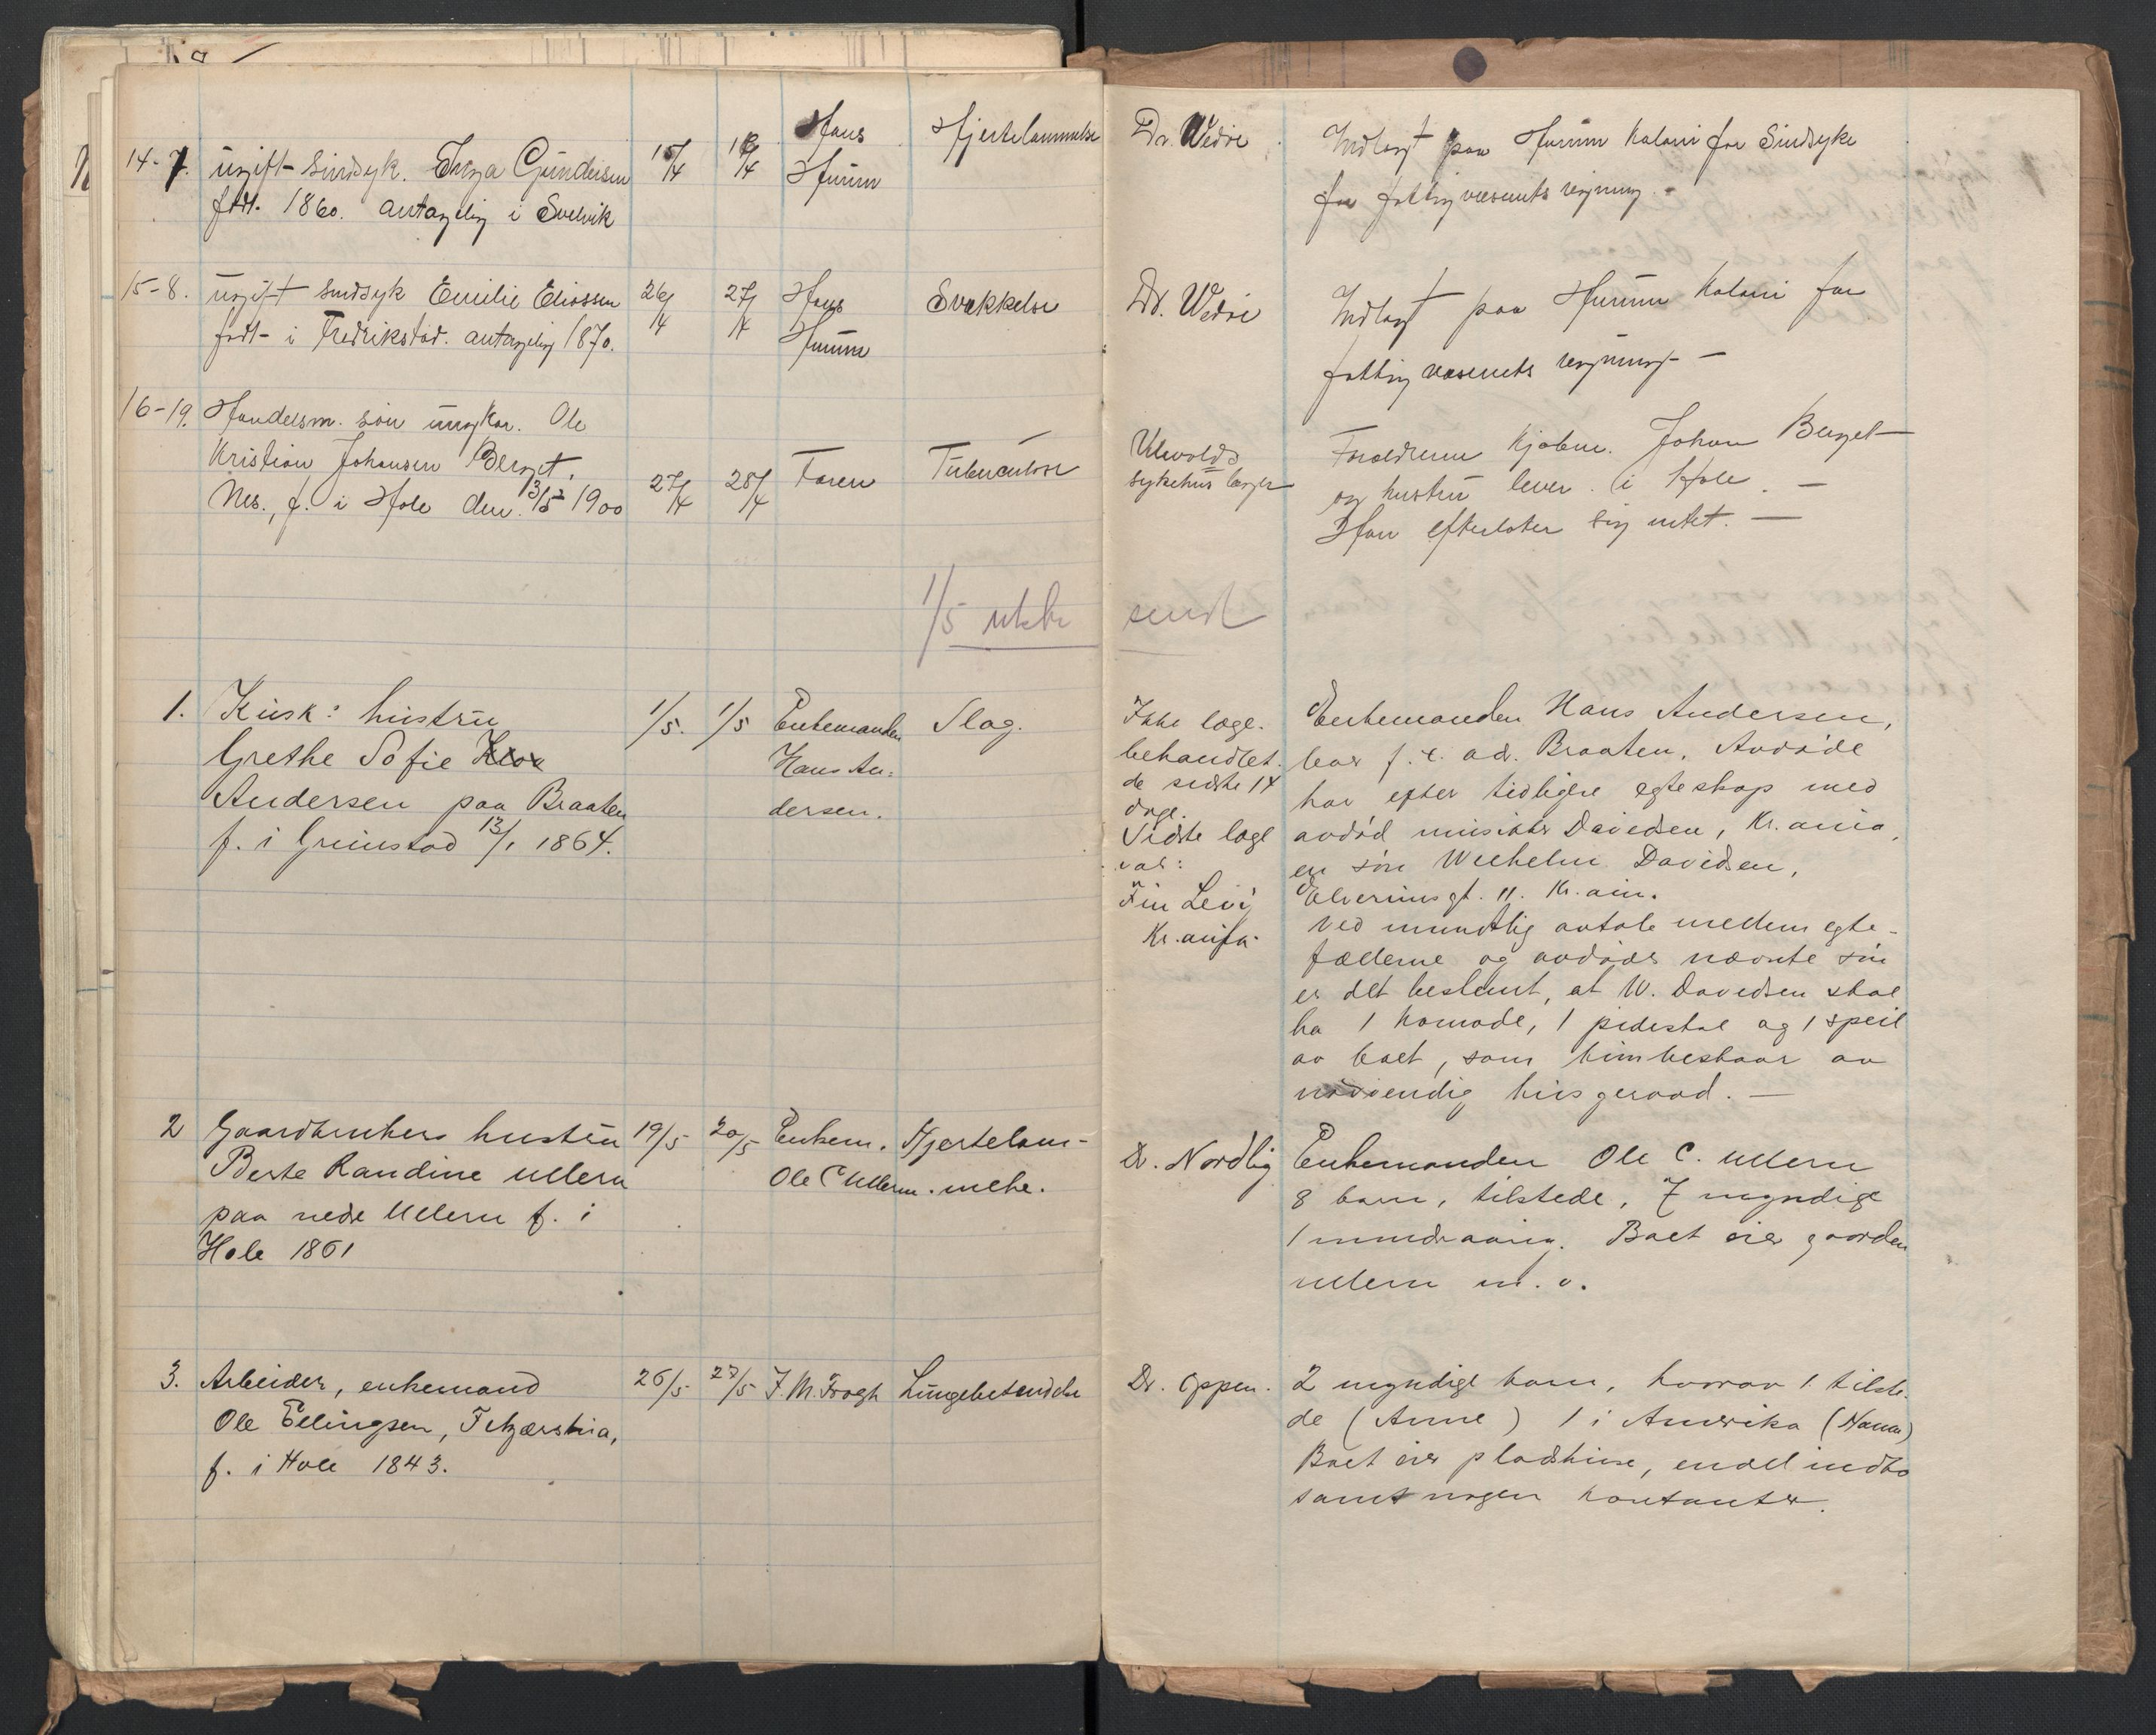 14-7. ugift sindsyk. Inga Gundersen
født 1860. antagelig i Svelvik
15/4
18/4
Hans
Hurum
Hjertelammelse
Dr. Wedøe
Indlagt paa Hurum Koloni for Sindsyke
for fattigvæsenets regning. -
15-8. ugift sindsyk Emilie Eliassen
født i Fredrikstad. antagelig 1870.
26/4
27/4
Hans
Hurum
Svækkelse
Dr. Wedøe
Indlagt paa Hurum Koloni for
fattigvæsenets regning -
16-19. Handelsm. søn ungkar. Ole
Kristian Johansen Berget,
Nes., f. i Hole den 13/5 1900
27/4
28/4
Faren
Tuberculose
Ulevolds
sykehus læger
Forældrene Kjøbm. Johan Berget
og hustru lever i Hole. -
Han efterlater sig intet. -
1/5 utskr sendt
1. Kusk: hustru
Grethe Sofie
Andersen paa Braaten
f. i Grimstad 13/1 1864.
1/5.
1/5
Enkemanden
Hans An=
dersen.
Slag.
Ikke læge-
behandlet
de sidste 14
dage.
Sidste læge
var:
Fin Levij
Kr.ania.
Enkemanden Hans Andersen,
bor f. t. ad. Braaten. Avdøde
har efter tidligere egteskap med
avdød musiker Davidsen, Kr.ania,
en søn Wilhelm Davidsen,
gt. 11. Kr.ania.
Ved mundtlig avtale mellem egte-
fællerne og avdødes nævnte søn
er det bestemt, at W. Davidsen skal
ha 1 komode, 1 pidestal og 1 speil
av boet, som kun bestaar av
nødvendig husgeraad. -
2 Gaardbrukers hustru
Berte Randine Ullern
paa nedre Ullern f. i
Hole 1861
19/5
20/5
Enkem.
Ole C Ullern.
Hjertelam-
melse.
Dr. Nordlig
Enkemanden Ole C. Ullern
8 barn, tilstede, 7 myndige
1 mindreaarig. Boet eier gaarden
Ullern m. v.
3. Arbeider, enkemand
Ole Ellingsen,
f. i Hole 1843.
26/5
27/5
J. M. Frogh
Lungebetendelse
Dr. Oppen.
2 myndige barn, hvorav 1 tilste-
de (Anne) 1 i Amerika (Nanna)
Boet eier pladshuse, endel indbo
samt nogen kontanter.